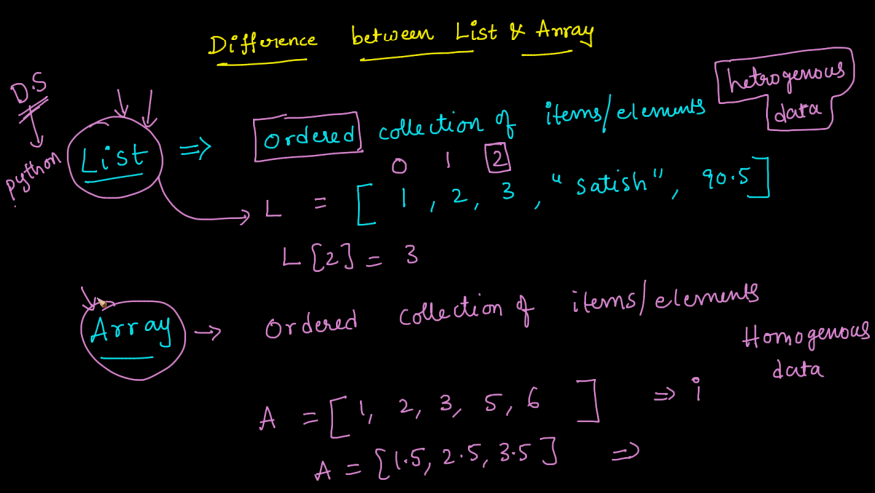 Difference between List & Array
D.S
python
List => Ordered collection of items/elements
hetrogenous
data
0 1 2
L = [ 1 , 2 , 3 , "satish" , 90.5 ]
L [2] = 3
Array → Ordered collection of items/elements
Homogenous
data
A = [ 1, 2, 3, 5, 6 ] => i
A = [1.5, 2.5, 3.5] =>